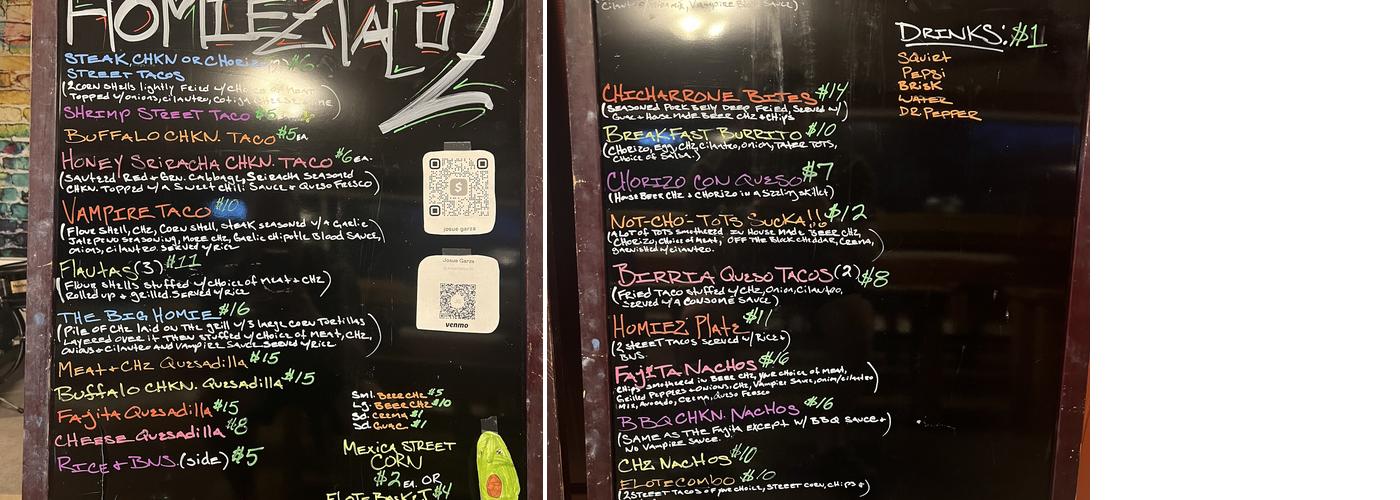 HOMIEZ TACO
2
STEAK, CHKN OR CHORIZO
STREET TACOS
(2 CORN SHELLS LIGHTLY FRIED W/CHOICE OF MEAT
TOPPED W/ONIONS, CILANTRO,
SHRIMP STREET TACO
BUFFALO CHKN. TACO $5 EA.
HONEY SRIRACHA CHKN. TACO $6 EA.
(SAUTEED RED & GRN. CABBAGE, SRIRACHA SEASONED
CHKN. TOPPED W/ A SWEET CHILI SAUCE & QUESO FRESCO)
VAMPIRE TACO $10
(FLOUR SHELL, CHZ, CORN SHELL, STEAK SEASONED W/ A GARLIC
JALEPENO SEASONING, MORE CHZ, GARLIC CHIPOTLE BLOOD SAUCE,
ONIONS, CILANTRO. SERVED W/RICE)
FLAUTAS (3) $11
(FLOUR SHELLS STUFFED W/CHOICE OF MEAT & CHZ
ROLLED UP & GRILLED. SERVED W/RICE)
THE BIG HOMIE $16
(PILE OF CHZ LAID ON THE GRILL W/3 LARGE CORN TORTILLAS
LAYERED OVER IT THEN STUFFED W/CHOICE OF MEAT, CHZ,
ONIONS & CILANTRO AND VAMPIRE SAUCE. SERVED W/RICE)
MEAT & CHZ QUESADILLA $15
BUFFALO CHKN. QUESADILLA $15
FAJITA QUESADILLA $15
CHEESE QUESADILLA $8
RICE & BNS. (SIDE) $5
josue garza
Josue Garza
venmo
SML. BEER CHZ $5
LG. BEER CHZ $10
SD. CREMA $1
SD. GUAC $1
MEXICA STREET
CORN
$2 EA. OR
ELOTE BASKET $4
CHICHARRONE BITES $14
(SEASONED PORK BELLY DEEP FRIED, SERVED W/
GUAC & HOUSE MADE BEER CHZ & CHIPS)
BREAKFAST BURRITO $10
(CHORIZO, EGG, CHZ, CILANTRO, ONION, TATER TOTS,
CHOICE OF SALSA.)
CHORIZO CON QUESO $7
(HOUSE BEER CHZ & CHORIZO IN A SIZZLING SKILLET)
NOT-CHO-TOTS SUCKA!! $12
(A LOT OF TOTS SMOTHERED IN HOUSE MADE BEER CHZ,
CHORIZO, CHOICE OF MEAT, OFF THE BLOCK CHEDDAR, CREMA,
GARNISHED W/CILANTRO.)
BIRRIA QUESO TACOS (2) $8
(FRIED TACO STUFFED W/CHZ, ONION, CILANTRO,
SERVED W/A CONSOME SAUCE)
HOMIEZ PLATE $11
(2 STREET TACOS SERVED W/RICE &
BNS.)
FAJITA NACHOS $16
(CHIPS SMOTHERED IN BEER CHZ, YOUR CHOICE OF MEAT,
GRILLED PEPPERS & ONIONS, CHZ, VAMPIRE SAUCE, ONION/CILANTRO
MIX, AVOCADO, CREMA, QUESO FRESCO)
BBQ CHKN. NACHOS $16
(SAME AS THE FAJITA EXCEPT W/ BBQ SAUCE &
NO VAMPIRE SAUCE.)
CHZ NACHOS $10
ELOTE COMBO $10
(2 STREET TACOS OF YOUR CHOICE, STREET CORN, CHIPS &
DRINKS: $1
SQUIRT
PEPSI
BRISK
WATER
DR. PEPPER